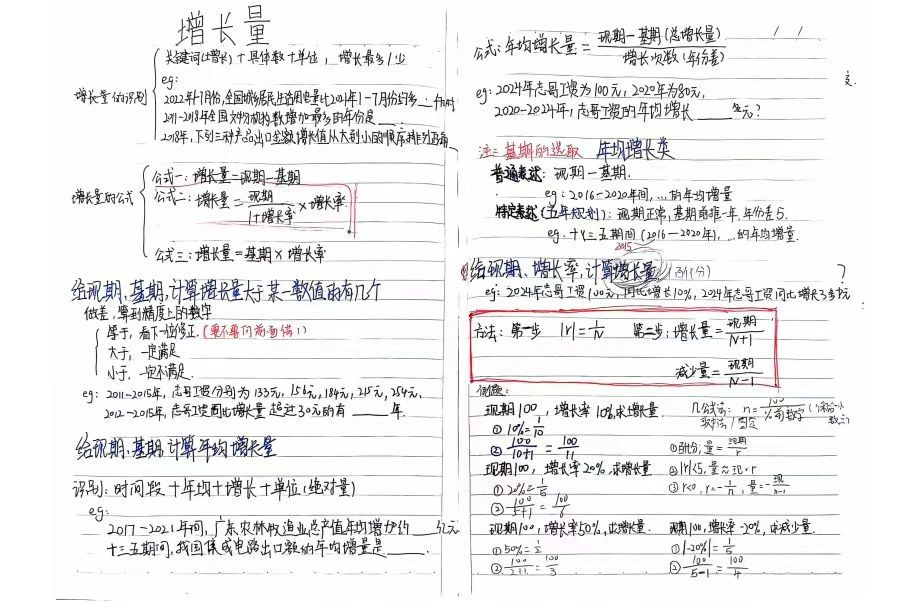 增长量
增长量的识别
关键词(增长)+具体数+单位，增长最多/少
eg:
2022年1-7月份,全国城乡居民生活用电量比2021年1-7月份约多
2011-2018年全国文物机构数增加最多的年份是____.
2018年,下列三种产品出口金额增长值从大到小的顺序排列正确
增长量的公式
公式一:增长量=现期-基期
公式二:增长量=现期/1+增长率×增长率
公式三:增长量=基期×增长率
给现期、基期,计算增长量大于某一数值的有几个
做差,看到精度上的数字
等于,看下一位修正.
大于,一定满足
小于,一定不满足.
eg:2011-2015年,志哥工资分别为133元,156元,184元,215元,254元.
2012-2015年,志哥工资同比增长量超过30元的有____年.
给现期、基期,计算年均增长量
识别:时间段+年均+增长+单位(绝对量)
eg:
2017-2021年间,广东农林牧渔业总产值年均增加约____亿元
十三五期间,我国集成电路出口额的年均增量是____.
公式:年均增长量=现期-基期(总增长量)/增长次数(年份差)
eg:2024年志哥工资为100元,2020年为80元,
2020-2024年,志哥工资的年均增长____元?
注:基期的选取 年均增长类
普通表述:现期-基期.
eg:2016-2020年间,...的年均增量
特定表述(五年规划):现期正常,基期前推一年,年份差5.
eg.十三五期间(2016-2020年),...的年均增量.
2015
给现期、增长率,计算增长量(百化分)
?
eg:2024年志哥工资100元,同比增长10%,2024年志哥工资同比增长了多少元
方法:第一步 |r|=1/N 第二步:增长量=现期/N+1
减少量=现期/N-1
例题:
现期100,增长率10%求增长量.
①10%=1/10
②100/10+1=100/11
现期100,增长率20%,求增长量
①20%=1/5
②100/5+1=100/6
现期100,增长率50%,求增长量.
①50%=1/2
②100/2+1=100/3
n=100/%前数字
①百化分,量=现期/r
②|r|<5,量≈现·r
③r<0,r=-1/n,量=-现/n-1
现期100,增长率-20%,求减少量.
①|-20%|=1/5
②100/5-1=100/4